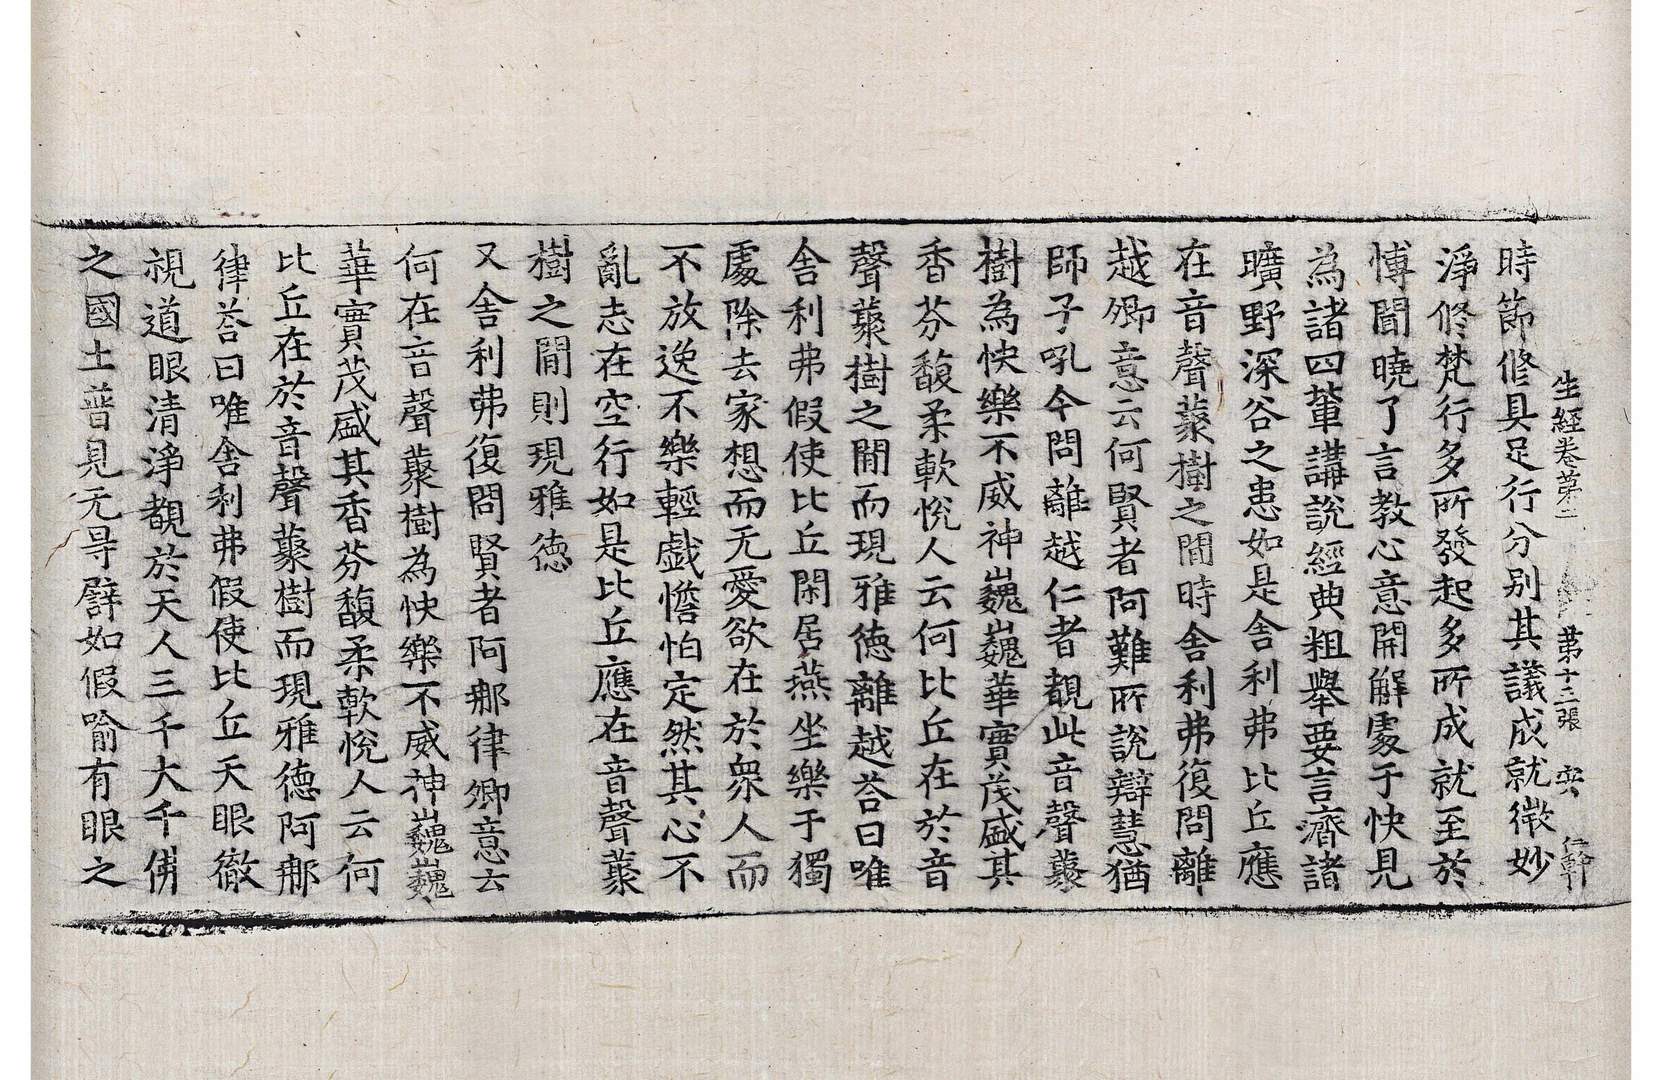 生經卷第二 第十三張 安 仁幹
時節修具足行分別其議成就微妙
淨修梵行多所發起多所成就至於
博聞曉了言教心意開解處于快見
為諸四輩講說經典粗舉要言濟諸
曠野深谷之患如是舍利弗比丘應
在音聲藂樹之間時舍利弗復問離
越卿意云何賢者阿難所說辯慧猶
師子吼今問離越仁者覩此音聲藂
樹為快樂不威神巍巍華實茂盛其
香芬馥柔軟悅人云何比丘在於音
聲藂樹之間而現雅德離越荅曰唯
舍利弗假使比丘閑居燕坐樂于獨
處除去家想而无愛欲在於衆人而
不放逸不樂輕戲憺怕定然其心不
亂志在空行如是比丘應在音聲藂
樹之間則現雅德
又舍利弗復問賢者阿那律卿意云
何在音聲藂樹為快樂不威神巍巍
華實茂盛其香芬馥柔軟悅人云何
比丘在於音聲藂樹而現雅德阿那
律荅曰唯舍利弗假使比丘天眼徹
視道眼清淨覩於天人三千大千佛
之國土普見无㝵譬如假喻有眼之